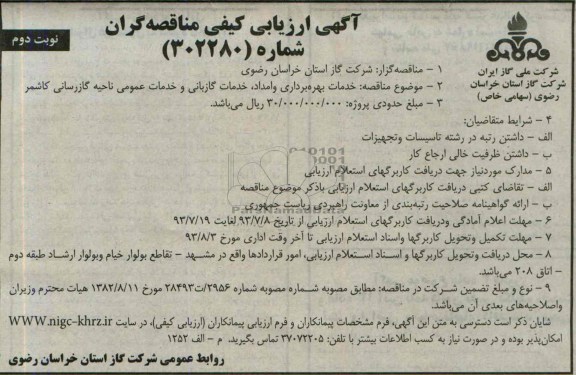 آگهی ارزیابی کیفی مناقصه‌گران
شماره (۳۰۲۲۸۰)
نوبت دوم
شرکت ملی گاز ایران
شرکت گاز استان خراسان
رضوی (سهامی خاص)
۱ – مناقصه‌گزار: شرکت گاز استان خراسان رضوی
۲ – موضوع مناقصه: خدمات بهره‌برداری وامداد، خدمات گازبانی و خدمات عمومی ناحیه گازرسانی کاشمر
۳ – مبلغ حدودی پروژه: ۳۰/۰۰۰/۰۰۰/۰۰۰ ریال می‌باشد.
۴ – شرایط متقاضیان:
الف – داشتن رتبه در رشته تاسیسات وتجهیزات
ب – داشتن ظرفیت خالی ارجاع کار
۵ – مدارک موردنیاز جهت دریافت کاربرگهای استعلام ارزیابی
الف – تقاضای کتبی دریافت کاربرگهای استعلام ارزیابی باذکر موضوع مناقصه
ب – ارائه گواهینامه صلاحیت رتبه‌بندی از معاونت راهبردی ریاست جمهوری
۶ – مهلت اعلام آمادگی ودریافت کاربرگهای استعلام ارزیابی از تاریخ ۹۳/۷/۸ لغایت ۹۳/۷/۱۹
۷ – مهلت تکمیل وتحویل کاربرگها واسناد استعلام ارزیابی تا آخر وقت اداری مورخ ۹۳/۸/۳
۸ – محل دریافت وتحویل کاربرگها و اسناد استعلام ارزیابی، امور قراردادها واقع در مشهد – تقاطع بولوار خیام وبولوار ارشاد طبقه دوم
– اتاق ۲۰۸ می‌باشد.
۹ – نوع و مبلغ تضمین شرکت در مناقصه: مطابق مصوبه شماره مصوبه شماره ۲۹۵۶/ت۲۸۴۹۳ مورخ ۱۳۸۲/۸/۱۱ هیات محترم وزیران
واصلاحیه‌های بعدی آن می‌باشد.
شایان ذکر است دسترسی به متن این آگهی، فرم مشخصات پیمانکاران و فرم ارزیابی پیمانکاران (ارزیابی کیفی)، در سایت WWW.nigc-khrz.ir
امکان‌پذیر بوده و در صورت نیاز به کسب اطلاعات بیشتر با تلفن: ۳۷۰۷۲۲۰۵ تماس بگیرید. م – الف ۱۲۵۲
روابط عمومی شرکت گاز استان خراسان رضوی